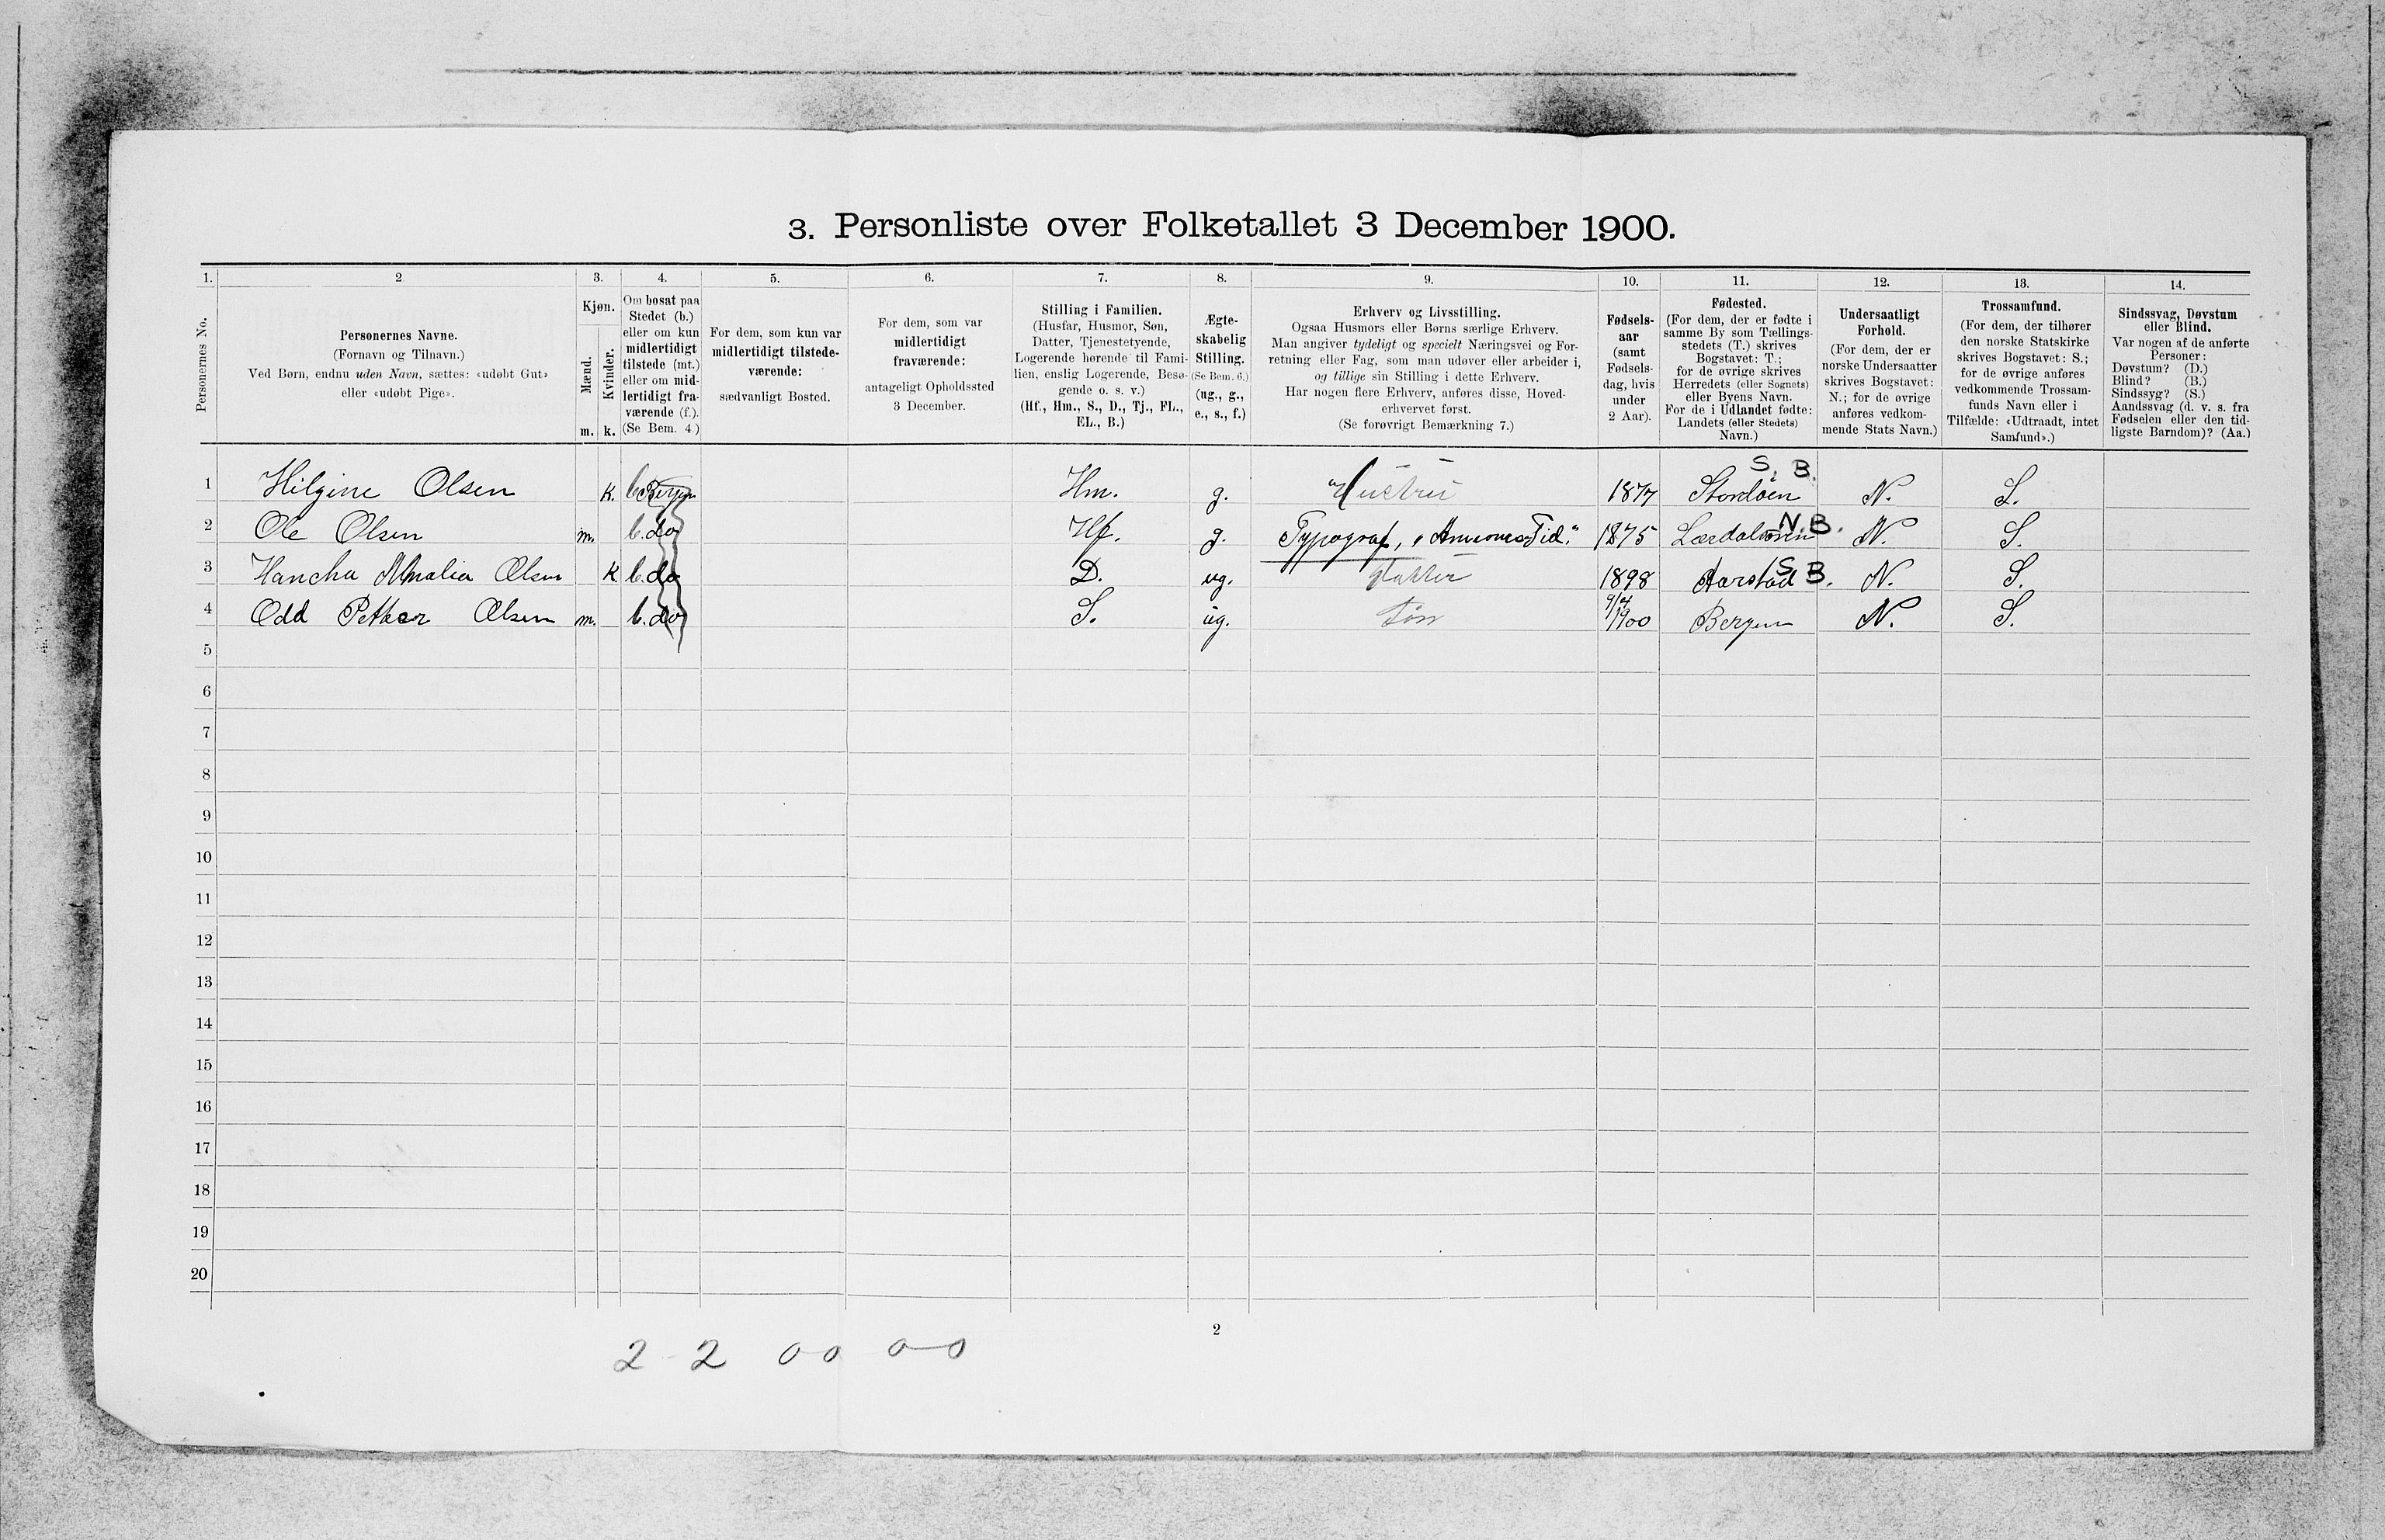 3. Personliste over Folketallet 3 December 1900.
1. 2 3. 4. 5. 6. 7. 8. 9. 10. 11. 12. 13. 14.
Personernes No.
Personernes Navne.
(Fornavn og Tilnavn.)
Ved Børn, endnu uden Navn, sættes: «udøbt Gut»
eller «udøbt Pige».
Kjøn.
Mænd.
Kvinder.
m. k.
Om bosat paa
Stedet (b.)
eller om kun
midlertidigt
tilstede (mt.)
eller om mid-
lertidigt fra-
værende (f.).
(Se Bem. 4.)
For dem, som kun var
midlertidigt tilstede-
værende:
sædvanligt Bosted.
For dem, som var
midlertidigt
fraværende:
antageligt Opholdssted
3 December.
Stilling i Familien.
(Husfar, Husmor, Søn,
Datter, Tjenestetyende,
Logerende hørende til Fami-
lien, enslig Logerende, Besø-
gende o. s. v.)
(Hf., Hm., S., D., Tj., FL.,
EL., B.)
Ægte-
skabelig
Stilling.
(Se Bem. 6.)
(ug., g.,
e., s., f.)
Erhverv og Livsstilling.
Ogsaa Husmors eller Børns særlige Erhverv.
Man angiver tydeligt og specielt Næringsvei og For-
retning eller Fag, som man udøver eller arbeider i,
og tillige sin Stilling i dette Erhverv.
Har nogen flere Erhverv, anføres disse, Hoved-
erhvervet først.
(Se forøvrigt Bemærkning 7.)
Fødsels-
aar
(samt
Fødsels-
dag, hvis
under
2 Aar).
Fødested.
(For dem, der er fødte i
samme By som Tællings-
stedets (T.) skrives
Bogstavet: T.;
for de øvrige skrives
Herredets (eller Sognets)
eller Byens Navn.
For de i Udlandet fødte:
Landets (eller Stedets)
Navn.)
Undersaatligt
Forhold.
(For dem, der er
norske Undersaatter
skrives Bogstavet:
N.; for de øvrige
anføres vedkom-
mende Stats Navn.)
Trossamfund.
(For dem, der tilhører
den norske Statskirke
skrives Bogstavet: S.;
for de øvrige anføres
vedkommende Trossam-
funds Navn eller i
Tilfælde: «Udtraadt, intet
Samfund».)
Sindssvag, Døvstum
eller Blind.
Var nogen af de anførte
Personer:
Døvstum? (D.)
Blind? (B.)
Sindssyg? (S.)
Aandssvag (d. v. s. fra
Fødselen eller den tid-
ligste Barndom)? (Aa.)
1 Hilgine Olsen k. b Bergen Hm. g. Hustru 1877 Stordøen S. B. N. S.
2 Ole Olsen m. b. do Hf. g. Typograf, 1875 Lærdalsøren N. B. N. S.
3 Hancha Amalia Olsen k b. do D. ug. Datter 1898 Aarstad S B. N. S.
4 Odd Petter Olsen m. b. do S. ug. Søn 1900 Bergen N. S.
5
6
7
8
9
10
11
12
13
14
15
16
17
18
19
20
2
2 2 0 0 0-0